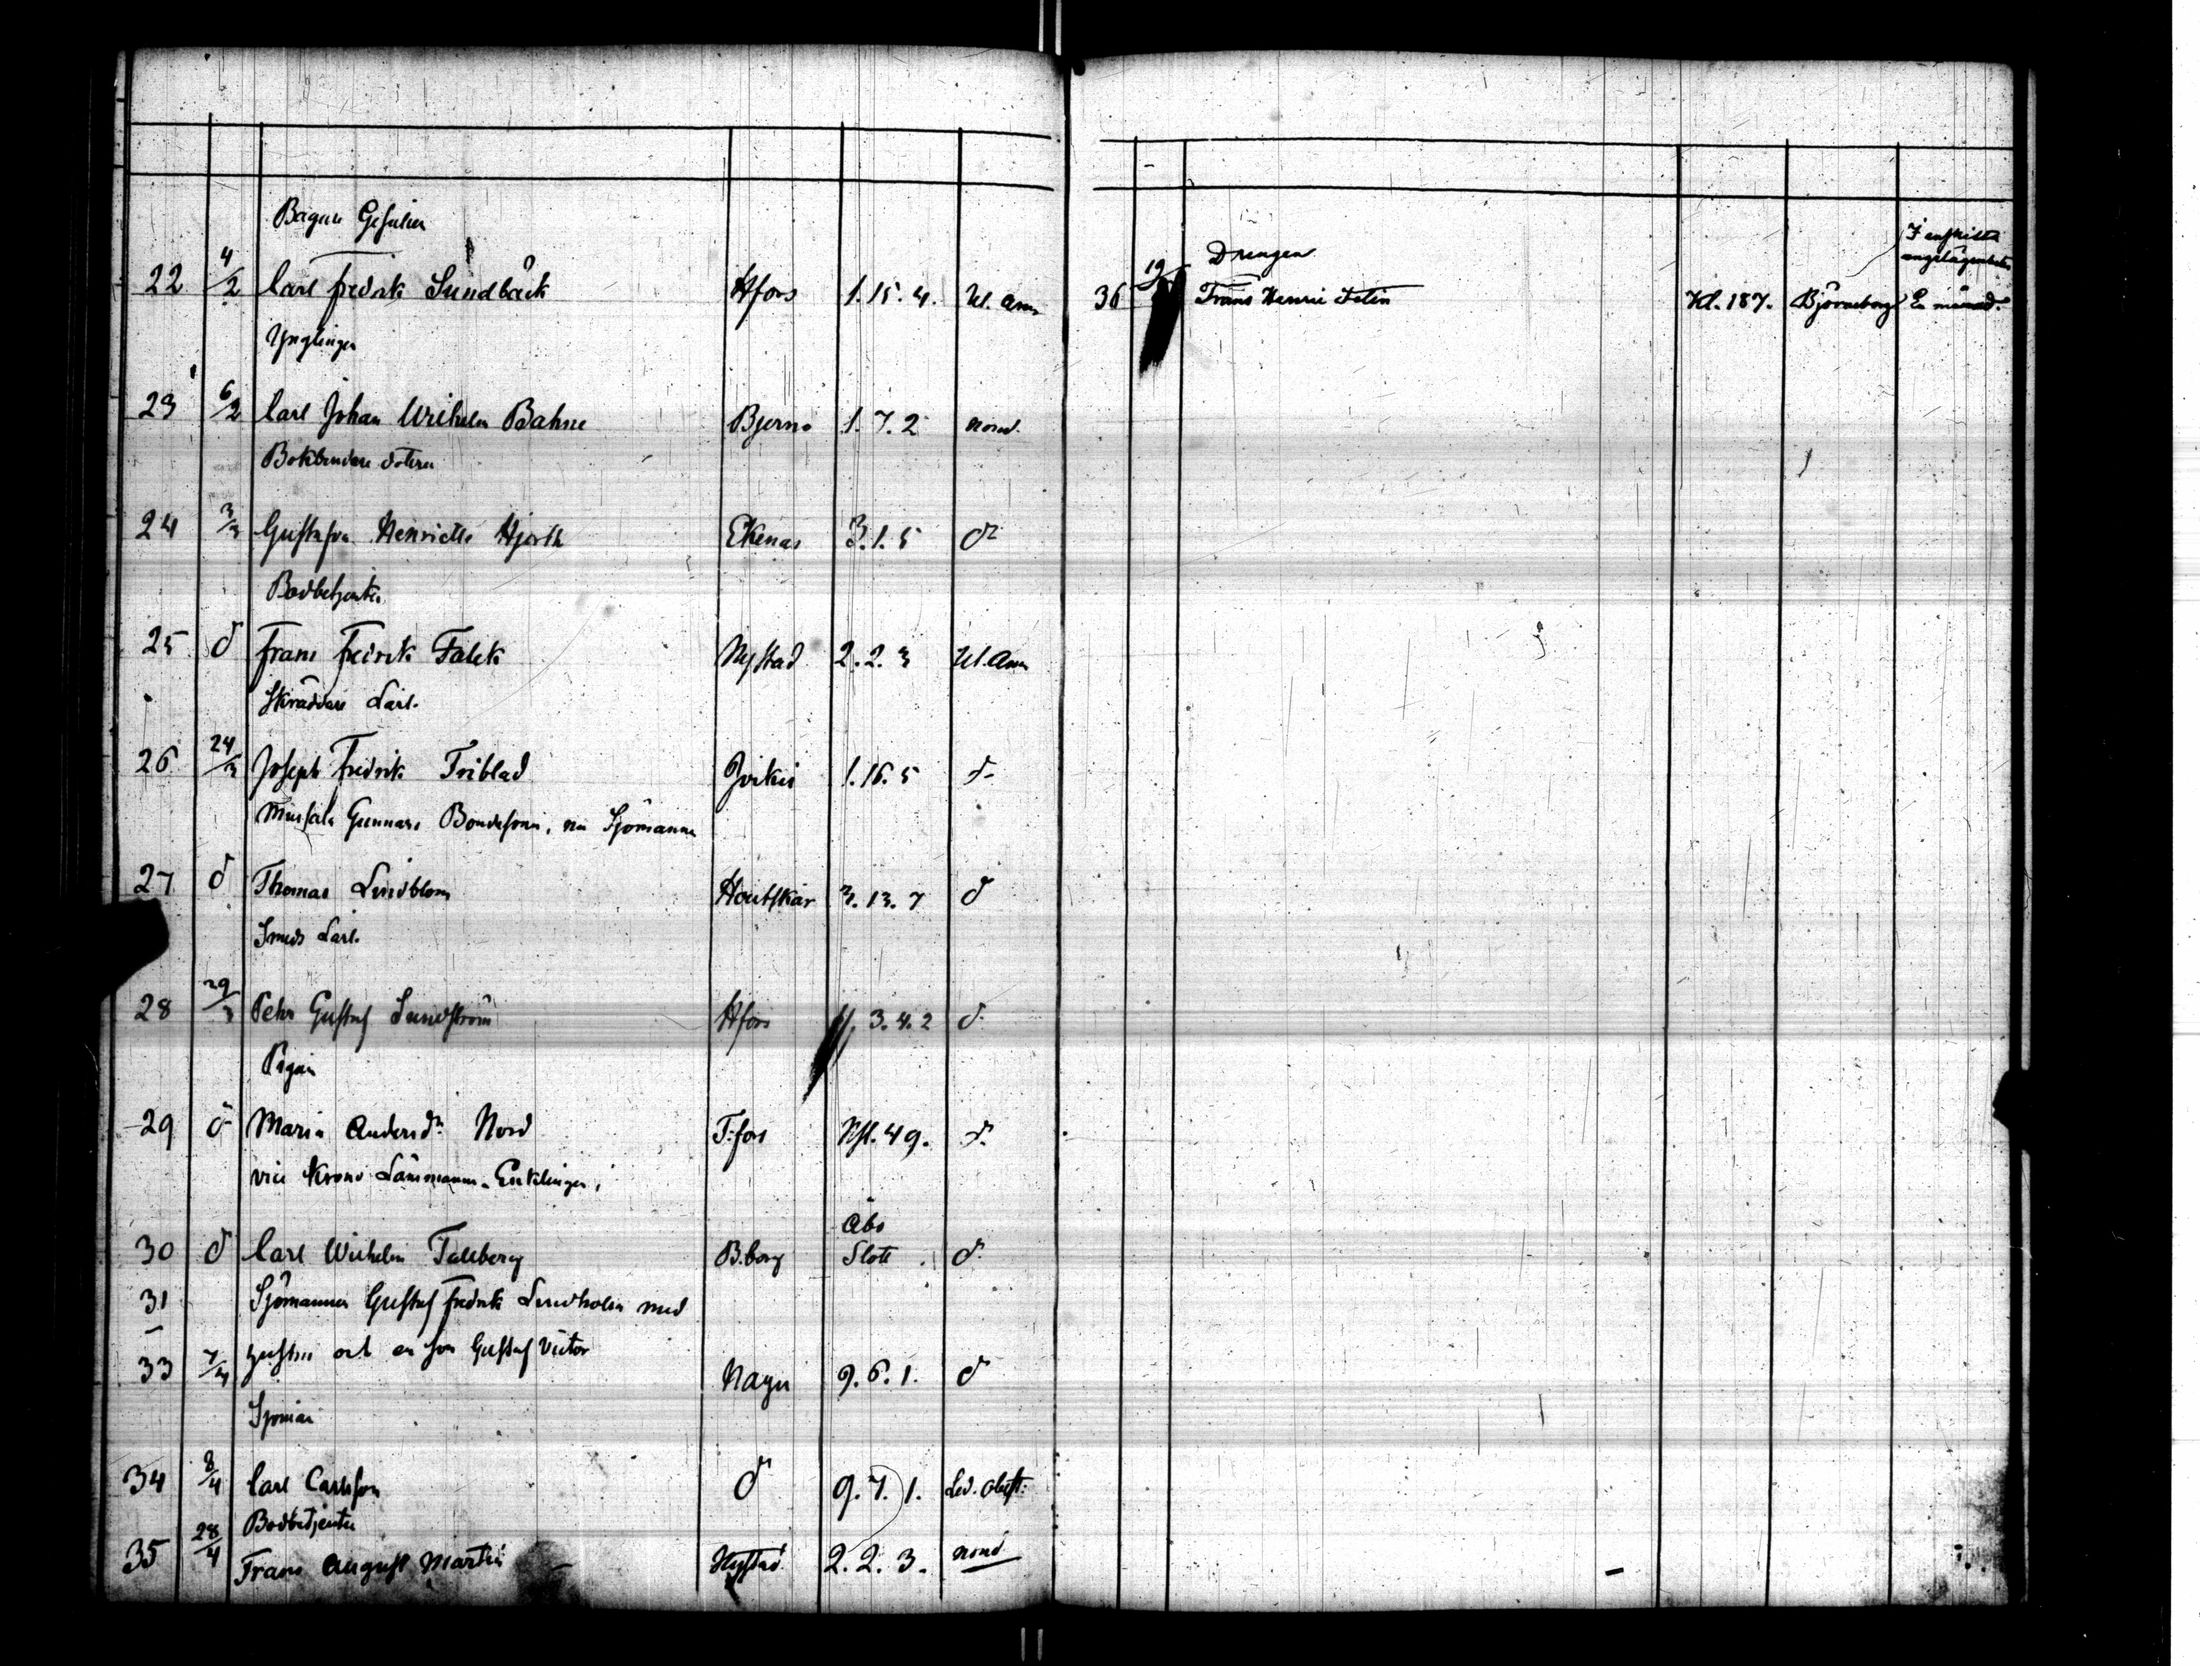 Bagare Gesällen
22 4/2 Carl Fredrik Sundbäck Hfors 1.15.4. Ul. Ann
Ynglingen
23 6/2 Carl Johan Wilhelm Bahne Bjerno 1.7.2 nord.
Bokbindare dotren
24 3/3 Gustafva Henriette Hjorth Ekenäs 3.1.5 do
Bodbetjenten
25 d Frans Fredrik Falck Nystad 2.2.3 Ul. Ann
Skräddare Lärl.
26 24/3 Joseph Fredrik Friblad Jockis 1.16.5 d
Gunnars Bondesonen, nu Sjömannen
27 d Thomas Lindblom Houtskär 3.13.7 d
Smeds Lärl.
28 29/3 Pehr Gustaf Sundström Hfors 3.4.2 d
Pigan
29 d Maria Andersdr Nord T:fors 49. d
vice Krono Länsmanns Enklingen
Åbo
30 d Carl Wilhelm Tallberg B.borg Slott d
31 Sjömannen Gustaf Fredrik Lindholm med
33 7/4 hustru och en son Gustaf Victor Nagu 9.6.1. d
Sjöman
34 8/4 Carl Carlsson d 9.7.1. Led. Attest:
Bodbetjenten
35 28/4 Frans August Martin Nystad 2.2.3. nord
I enskilta
Drengen angelägenheter
36 19 Frans Henric Felin Kl. 187. Björneborg En månad.